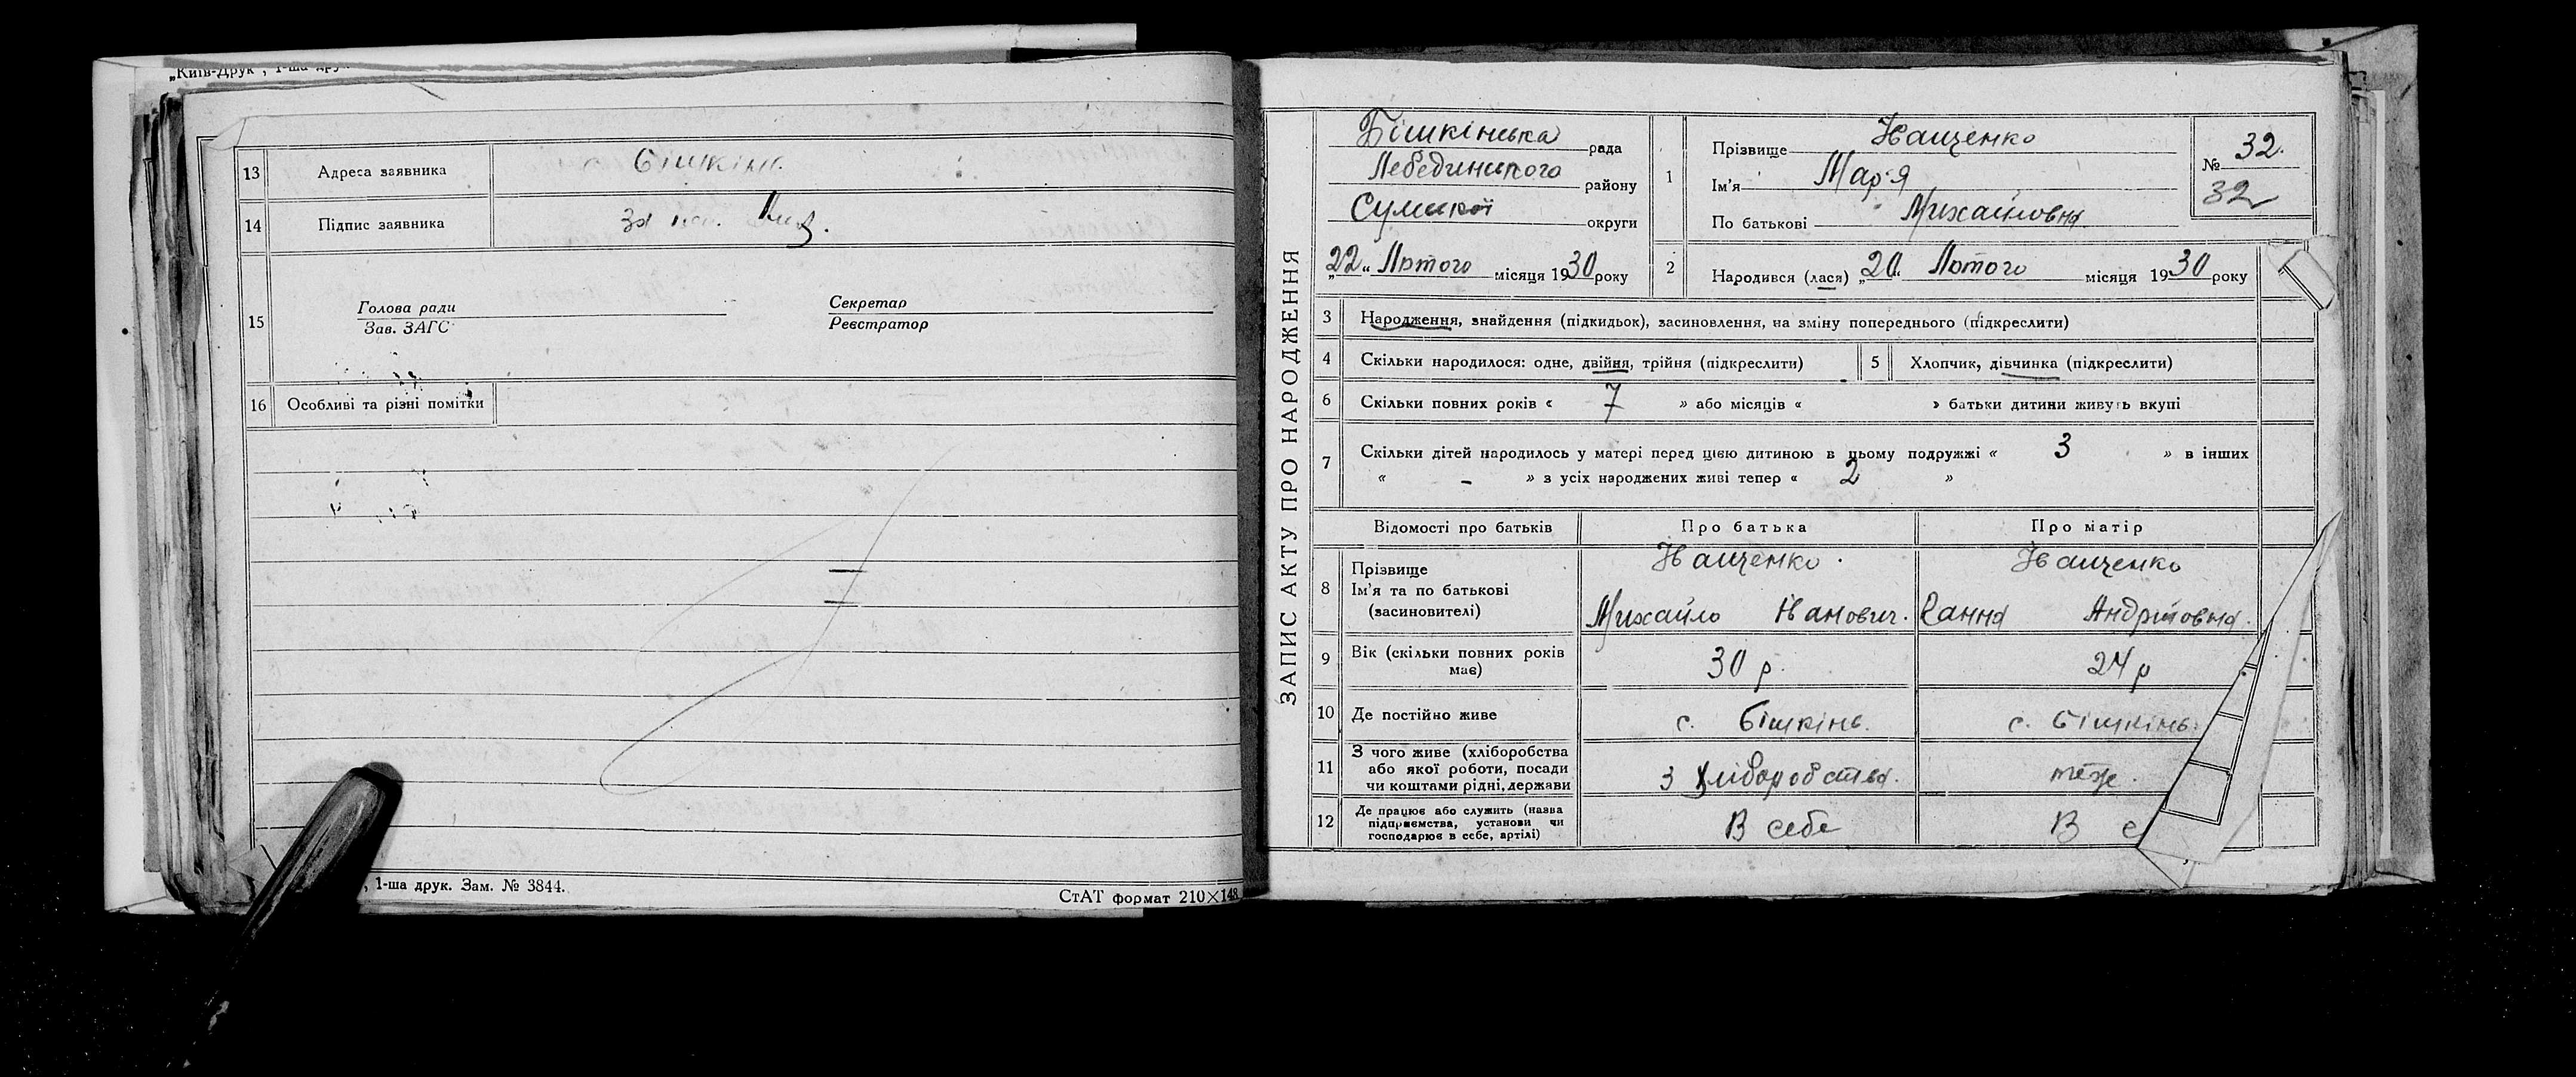 „Київ-Друк", 1-ша
13 Адреса заявника Бішкінь
14 Підпис заявника за
15 Голова ради Секретар
Зав. ЗАГС Реєстратор
16 Особливі та різні помітки
, 1-ша друк. Зам. № 3844.
СтАТ формат 210×148
ЗАПИС АКТУ ПРО НАРОДЖЕННЯ
Бішкінська рада
Лебединського району
Сумської округи
„22" Лютого місяця 1930 року
1 Прізвище Іващенко
Ім'я Мар'я
По батькові Михайловна
№ 32.
32
2 Народився (лася) „20" Лютого місяця 1930 року
3 Народження, знайдення (підкидьок), засиновлення, на зміну попереднього (підкреслити)
4 Скільки народилося: одне, двійня, трійня (підкреслити) 5 Хлопчик, дівчинка (підкреслити)
6 Скільки повних років « 7 » або місяців « » батьки дитини живуть вкупі
7 Скільки дітей народилось у матері перед цією дитиною в цьому подружжі « 3 » в інших
« - » з усіх народжених живі тепер « 2 »
Відомості про батьків Про батька Про матір
8 Прізвище Іващенко Іващенко
Ім'я та по батькові
(засиновителі) Михайло Іванович. Ганна Андріївна.
9 Вік (скільки повних років
має) 30 р. 24 р
10 Де постійно живе с. Бішкінь. с. Бішкінь.
11 З чого живе (хліборобства
або якої роботи, посади
чи коштами рідні, держави з хліборобства. теж.
12 Де працює або служить (назва
підприємства, установи чи
господарює в себе, артілі) В себе В с